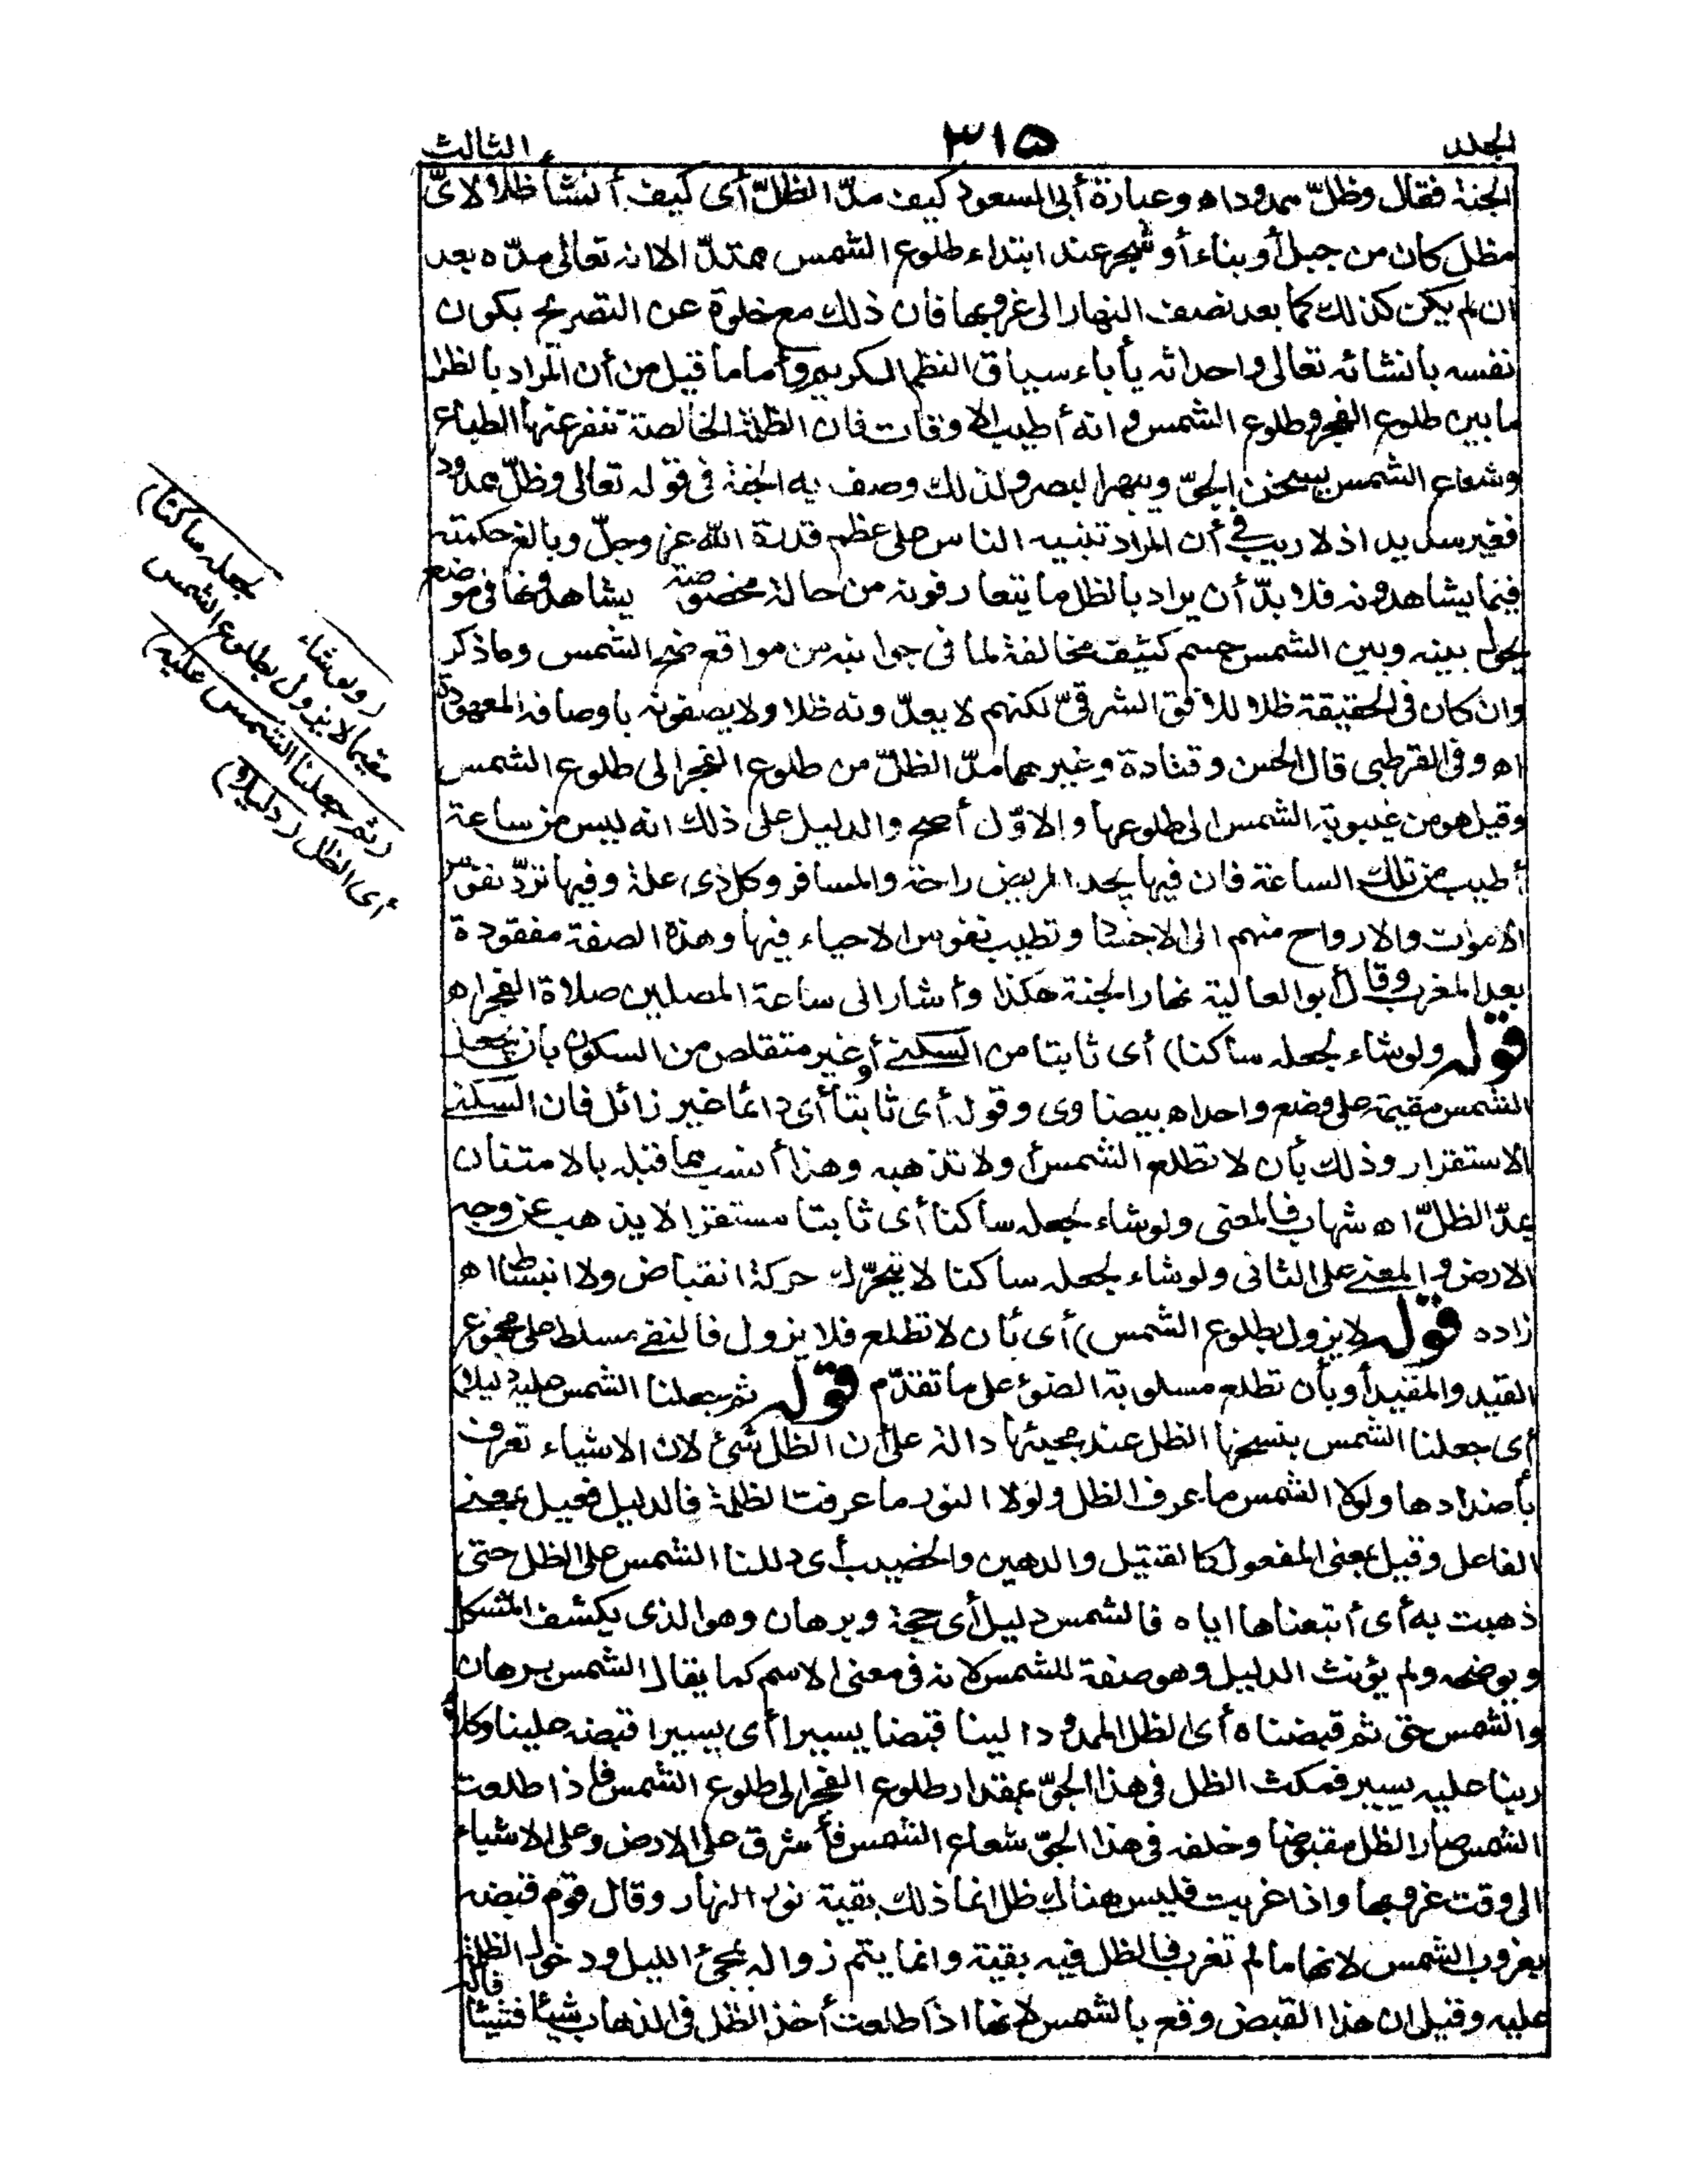 المجلد ٣١٥ الثالث
الجنة فقال وظلّ ممدود اه وعبارة أبي السعود كيف مدّ الظلّ أى كيف أنشأ ظلا ولا يّ
مظل كان من جبل أو بناء أو شجر عند ابتداء طلوع الشمس ممتدّ الا انه تعالى مدّه بعد
ان لم يكن كذلك كما بعد نصف النهار الى غروبها فان ذلك مع خلوة عن التصريح بكون
نفسه بانشائه تعالى واحداثه يأباه سياق النظم الكريم وأما ما قيل من أن المراد بالظل
ما بين طلوع الفجر وطلوع الشمس وانه أطيب الاوقات فان الظلمة الخالصة تنفر عنها الطباع
وشعاع الشمس يسخن الجوّ ويبهر البصر ولذلك وصف به الجنة فى قوله تعالى وظلّ ممدود
فغير سديد اذ لا ريب فى أن المراد تنبيه الناس على عظم قدرة الله عز وجلّ وبالغ حكمته
فيما يشاهدونه فلا بدّ أن يراد بالظل ما يتعارفونه من حالة مخصوصة يشاهدونها فى موضع
يحول بينه وبين الشمس جسم كثيف مخالفة لما فى جوانبه من مواقع ضح الشمس وما ذكر
وان كان فى الحقيقة ظلا للافق الشرقىّ لكنهم لا يعدّونه ظلا ولا يصفونه باوصافه المعهودة
اه وفى القرطبى قال الحسن وقتادة وغيرهما مدّ الظلّ من طلوع الفجر الى طلوع الشمس
وقيل هو من غيبوبة الشمس الى طلوعها والاوّل أصح والدليل على ذلك انه ليس من ساعة
أطيب من تلك الساعة فان فيها يجد المريض راحة والمسافر وكل ذى علة وفيها تردّ نفوس
الاموات والارواح منهم الى الاجساد وتطيب نفوس الاحياء فيها وهذه الصفة مفقودة
بعد المغرب وقال أبو العالية نهار الجنة هكذا وأشار الى ساعة المصلين صلاة الفجر اه
قوله ولو شاء لجعله ساكنا) أى ثابتا من السكنى أو غير متقلص من السكون بان يجعل
الشمس مقيمة على وضع واحد اه بيضاوى وقوله أى ثابتا أى دائما غير زائل فان السكنى
الاستقرار وذلك بأن لا تطلع الشمس أولا تذهبه وهذا أنسب بما قبله بالامتنان
بمدّ الظلّ اه شهاب فالمعنى ولو شاء لجعله ساكنا أى ثابتا مستقرا لا يذهب عن وجه
الارض والمعنى على الثانى ولو شاء لجعله ساكنا لا يتحرّك حركة انقباض ولا انبساط اه
زاده قوله لا يزول بطلوع الشمس) أى بأن لا تطلع فلا يزول فالنفى مسلط على مجموع
القيد والمقيد أو بأن تطلع مسلوبة الضوء على ما تقدّم قوله ثم جعلنا الشمس عليه دليلا)
أى جعلنا الشمس بنسخها الظل عند مجيئها دالة على أن الظل شئ لان الاشياء تعرف
بأضدادها ولولا الشمس ما عرف الظل ولولا النور ما عرفت الظلمة فالدليل فعيل بمعنى
الفاعل وقيل بمعنى المفعول كالقتيل والدهين والخضيب أى دللنا الشمس على الظل حتى
ذهبت به أى أتبعناها اياه فالشمس دليل أى حجة وبرهان وهو الذى يكشف المشكل
ويوضحه ولم يؤنث الدليل وهو صفة للشمس لانه فى معنى الاسم كما يقال الشمس برهان
والشمس حق ثم قبضناه أى الظل الممدود الينا قبضا يسيرا أى يسيرا قبضه علينا وكل أمر
ربنا عليه يسير فمكث الظل فى هذا الجوّ بمقدار طلوع الفجر الى طلوع الشمس فاذا طلعت
الشمس صار الظل مقبوضا وخلفه فى هذا الجوّ شعاع الشمس فأشرق على الارض وعلى الاشياء
الى وقت غروبها واذا غربت فليس هناك ظل انما ذلك بقية نور النهار وقال قوم قبضه
بغروب الشمس لانها ما لم تغرب فالظل فيه بقية وانما يتم زواله بمجئ الليل ودخول الظلمة
عليه وقيل ان هذا القبض وقع بالشمس لانها اذا طلعت أخذ الظل فى الذهاب شيئا فشيئا
قاله
(ولو شاء
لجعله ساكنا)
مقيما لا يزول بطلوع الشمس
(ثم جعلنا الشمس عليه)
أى الظل (دليلا)